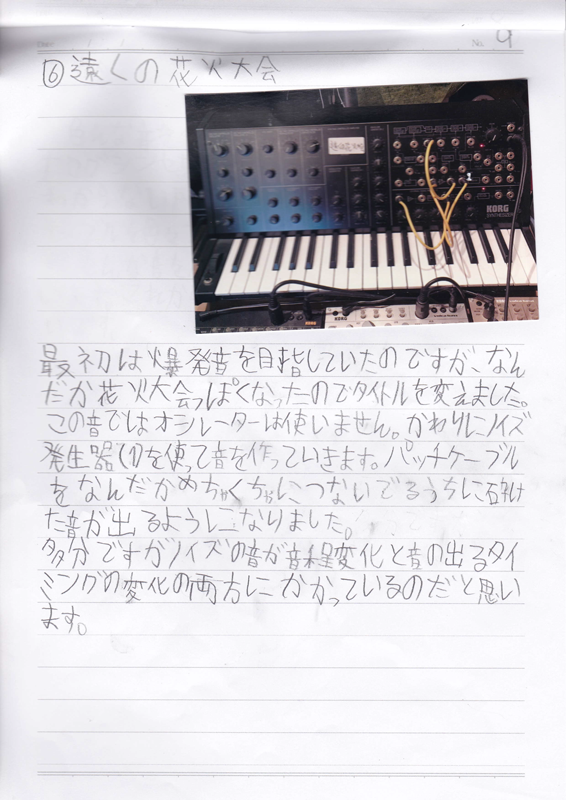 No. 9
⑥遠くの花火大会
1
KORG
SYNTHESIZER
KORG
最初は爆発音を目指していたのですが、なん
だか花火大会っぽくなったのでタイトルを変えました。
この音ではオシレーターは使いません。かわりにノイズ
発生器(1)を使って音を作っていきます。パッチケーブル
をなんだかめちゃくちゃにつないでるうちに砕け
た音が出るようになりました。
多分ですがノイズの音が音程変化と音の出るタイ
ミングの変化の両方にかかっているのだと思い
ます。